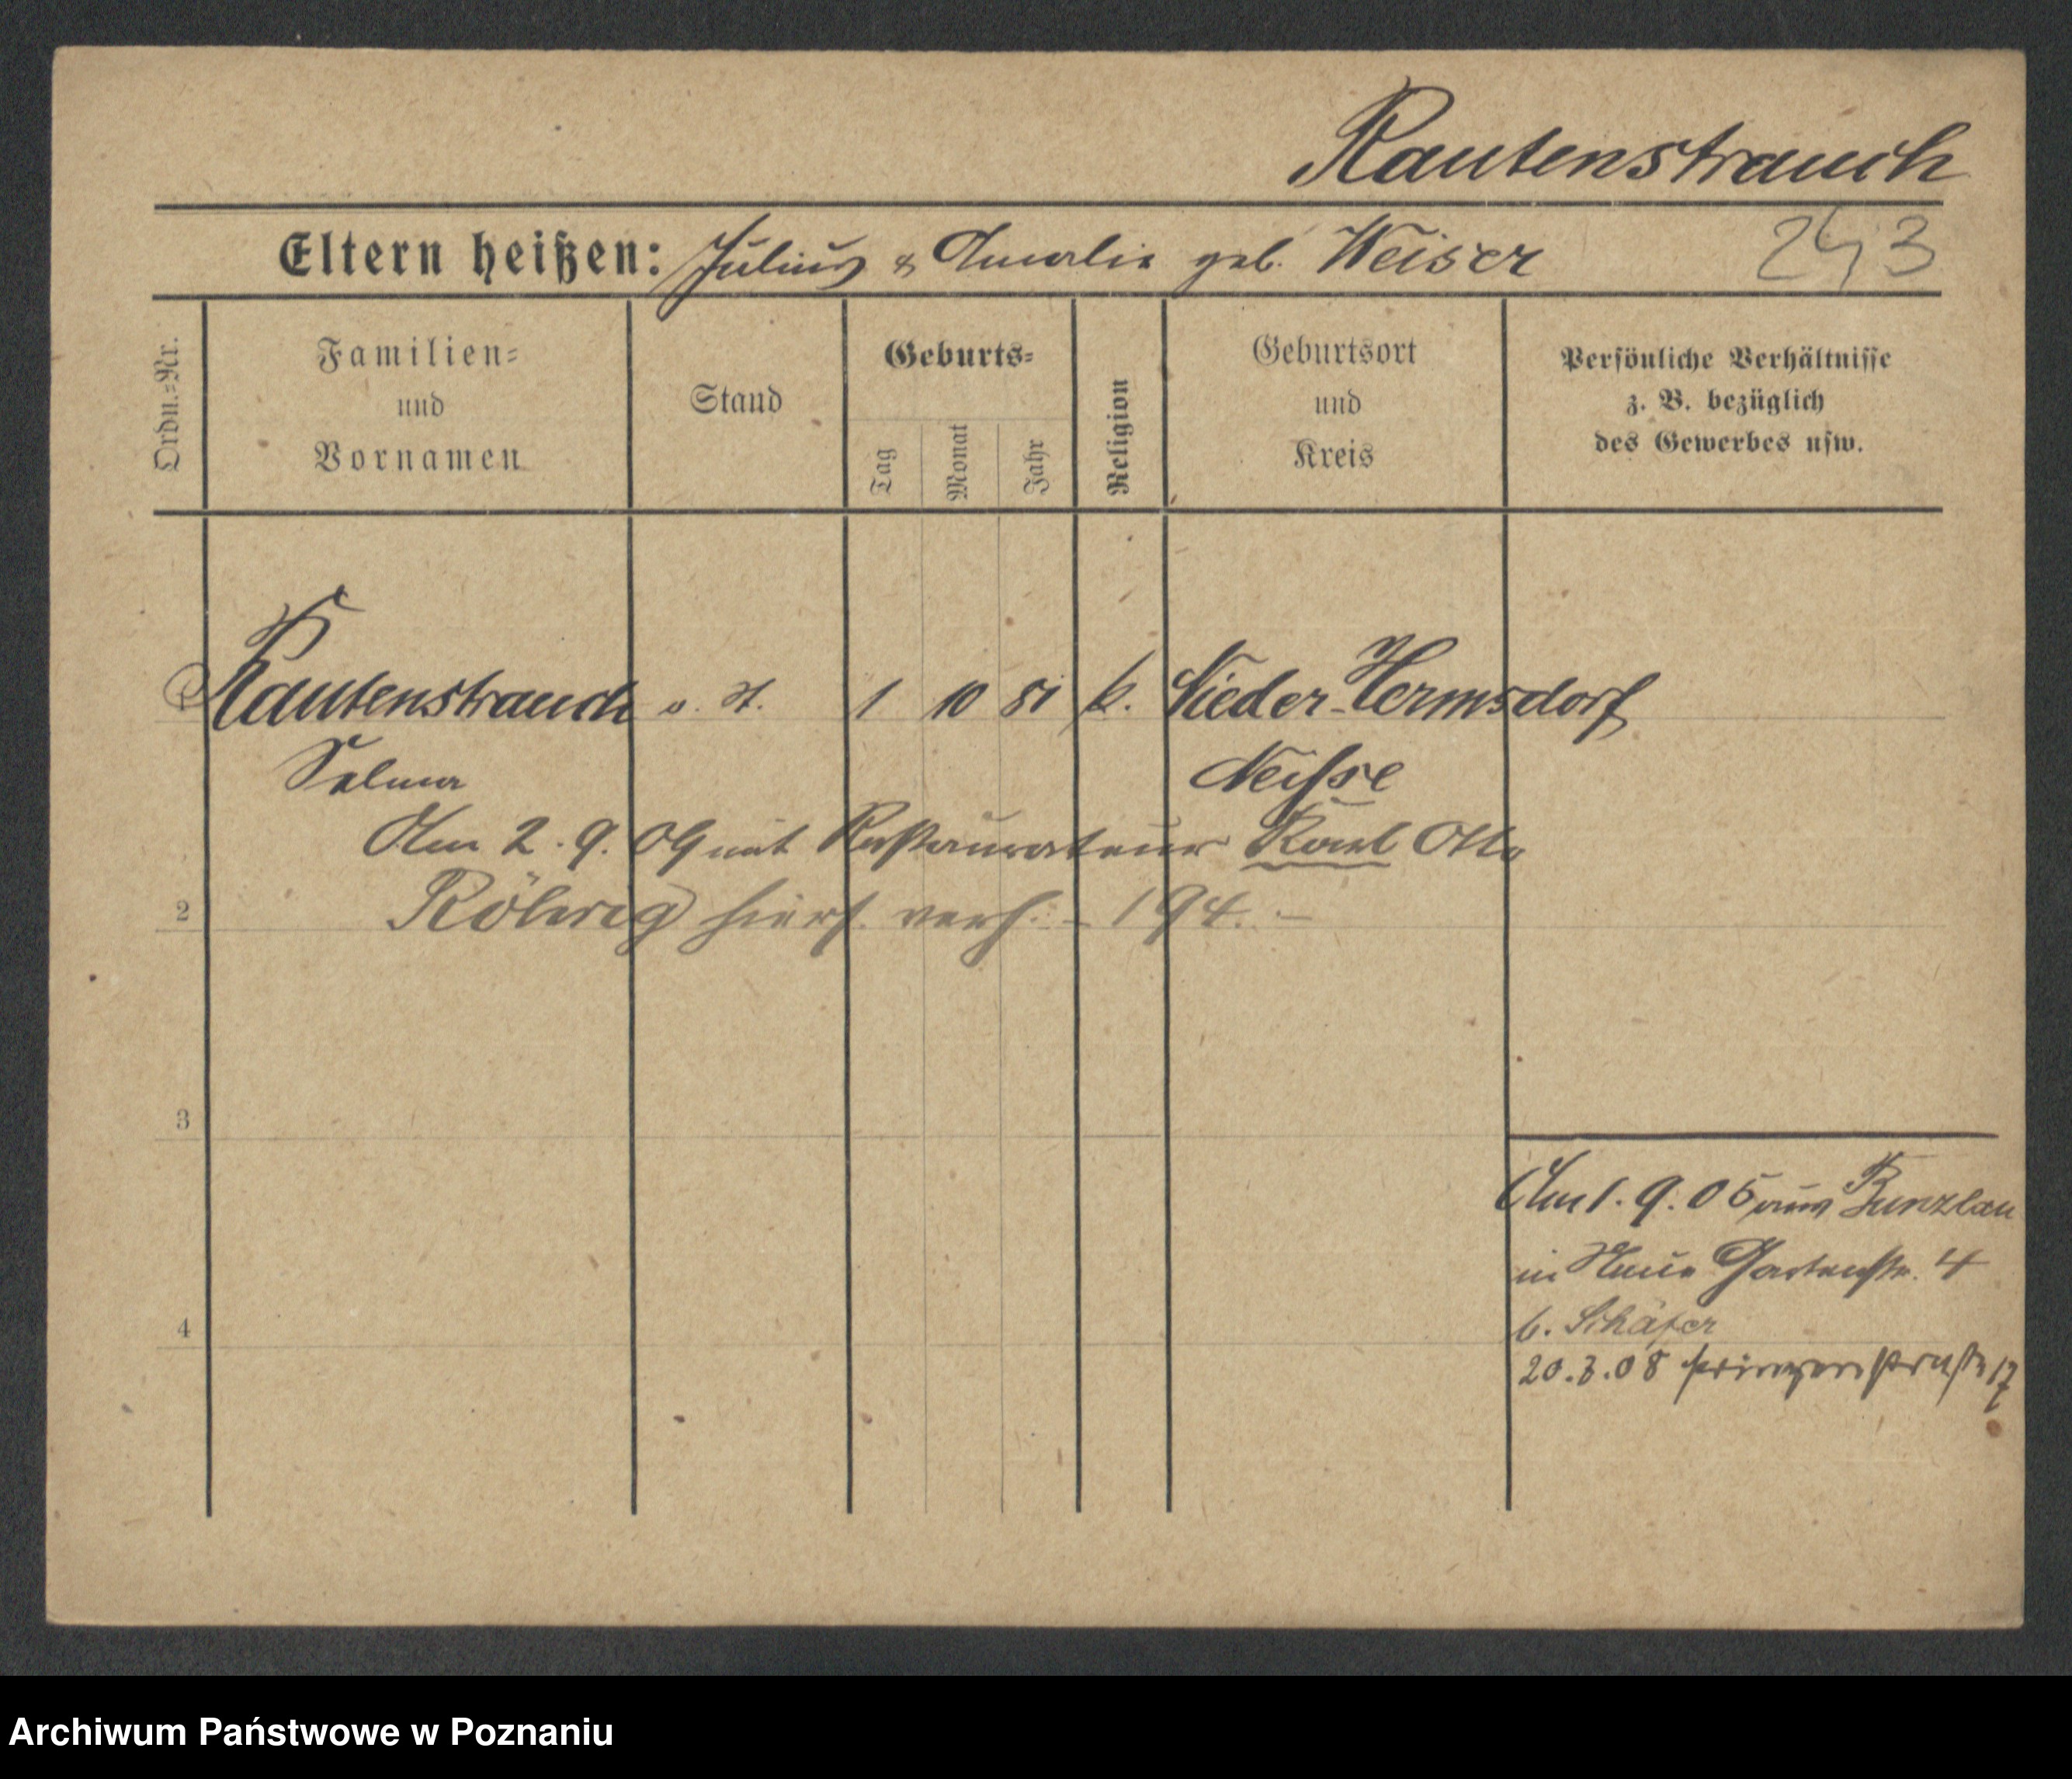 Rautenstrauch
Eltern heißen: Julius & Amalie geb. Weiser 243
Ordn.=Nr.
Familien=
und
Vornamen
Stand
Geburts=
Tag
Monat
Jahr
Religion
Geburtsort
und
Kreis
Persönliche Verhältnisse
z. B. bezüglich
des Gewerbes usw.
1 Rautenstrauch o. St. 1 10 81 k. Nieder-Hermsdorf
Selma Neisse
Am 2.9.09 mit Restaurateur Karl Otto
2 Röhrig hiers. verh. - 194. -
3
4
Am 1.9.05 aus Bunzlau
in Neue Gartenstr. 4
b. Schäfer
20.3.08 17
Archiwum Państwowe w Poznaniu